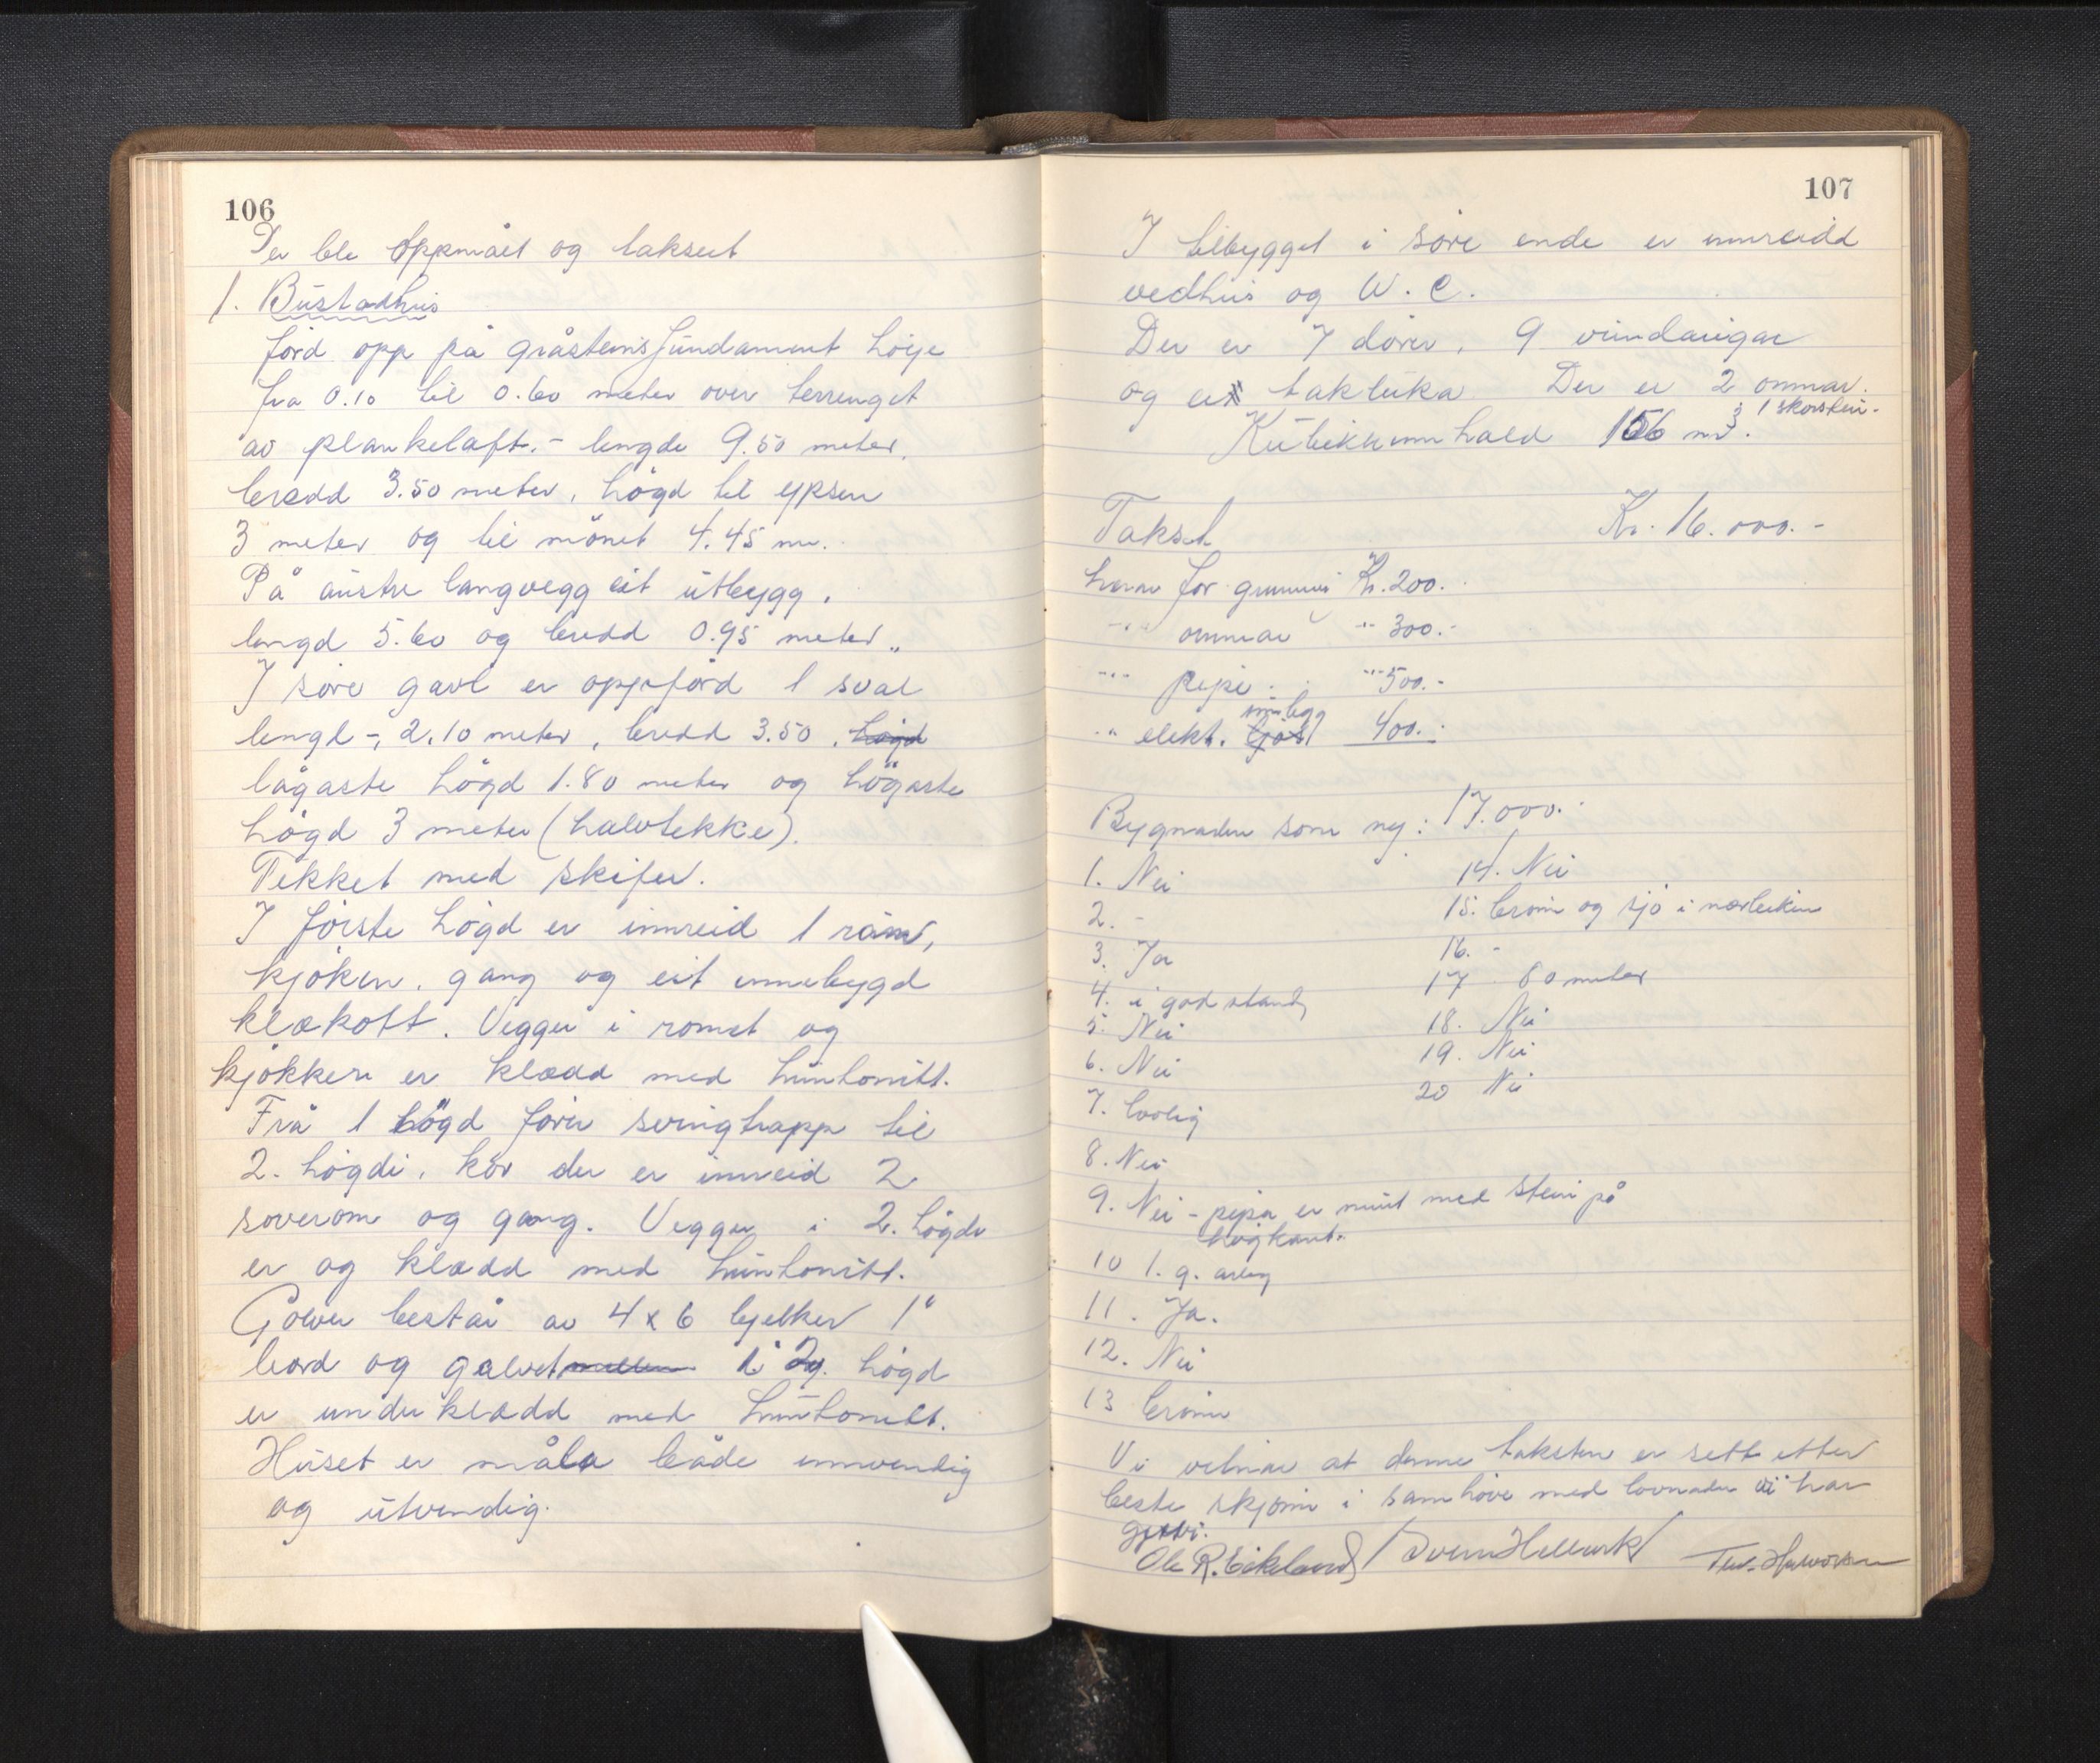 106
Der ble oppmålt og taksert
1. Bustadhus
förd opp på gråsteinsfundament höge
fra 0.10 til 0.60 meter over terrenget
av plankelaft. - lengde 9.50 meter,
bredd 3.50 meter, högd til ypsen
3 meter og til mönet 4.45 m.
På austre langvegg eit utbygg,
lengd 5.60 og bredd 0.95 meter.
I söre gavl er oppförd 1 sval
lengd -, 2.10 meter, bredd 3.50, högd
lågaste högd 1.80 meter og högaste
högd 3 meter (halvtekke).
Tekket med skifer.
I förste högd er innreid 1 rom,
kjöken, gang og eit innebygd
klekott. Vegger i romet og
kjökken er kledd med huntonitt.
Frå 1 högd förer svingtrapp til
2. högdi, kor der er inreid 2
soverom og gang. Vegger i 2. högdi
er og kledd med huntonitt.
Golver består av 4 x 6 bjelker 1"
bord og golvet mellem i 2. högd
er underkledd med huntonitt.
Huset er måla både innvendig
og utvendig.
107
I tilbygget i söre ende er innreidd
vedhus og W.C.
Der er 7 dörer, 9 vindaugar
og ei takluka Der er 2 omnar.
1 skorstein.
Kubikkinnhald 156 m³.
Takst Kr. 16.000.-
herav for grunnmur Kr. 200.-
-"- omnar " 300.-
-"- pipe " 500.-
innlegg
" elekt. ljos 400.-
Bygnaden som ny: 17.000.-
1. Nei
2. -
3. Ja
4. i god stand
5. Nei
6. Nei
7. bolig
8. Nei
9. Nei - pipa er murt med stein på
högkant.
10 1. g. årleg
11. Ja.
12. Nei
13 brönn
14. Nei
15. brönn og sjö i nærleiken
16. -
17 60 meter
18. Nei
19. Nei
20 Nei
Vi vitnar at denne taksten er sett etter
beste skjönn i samhöve med lovnaden vi har
gjevi.
Ole R. Eikeland